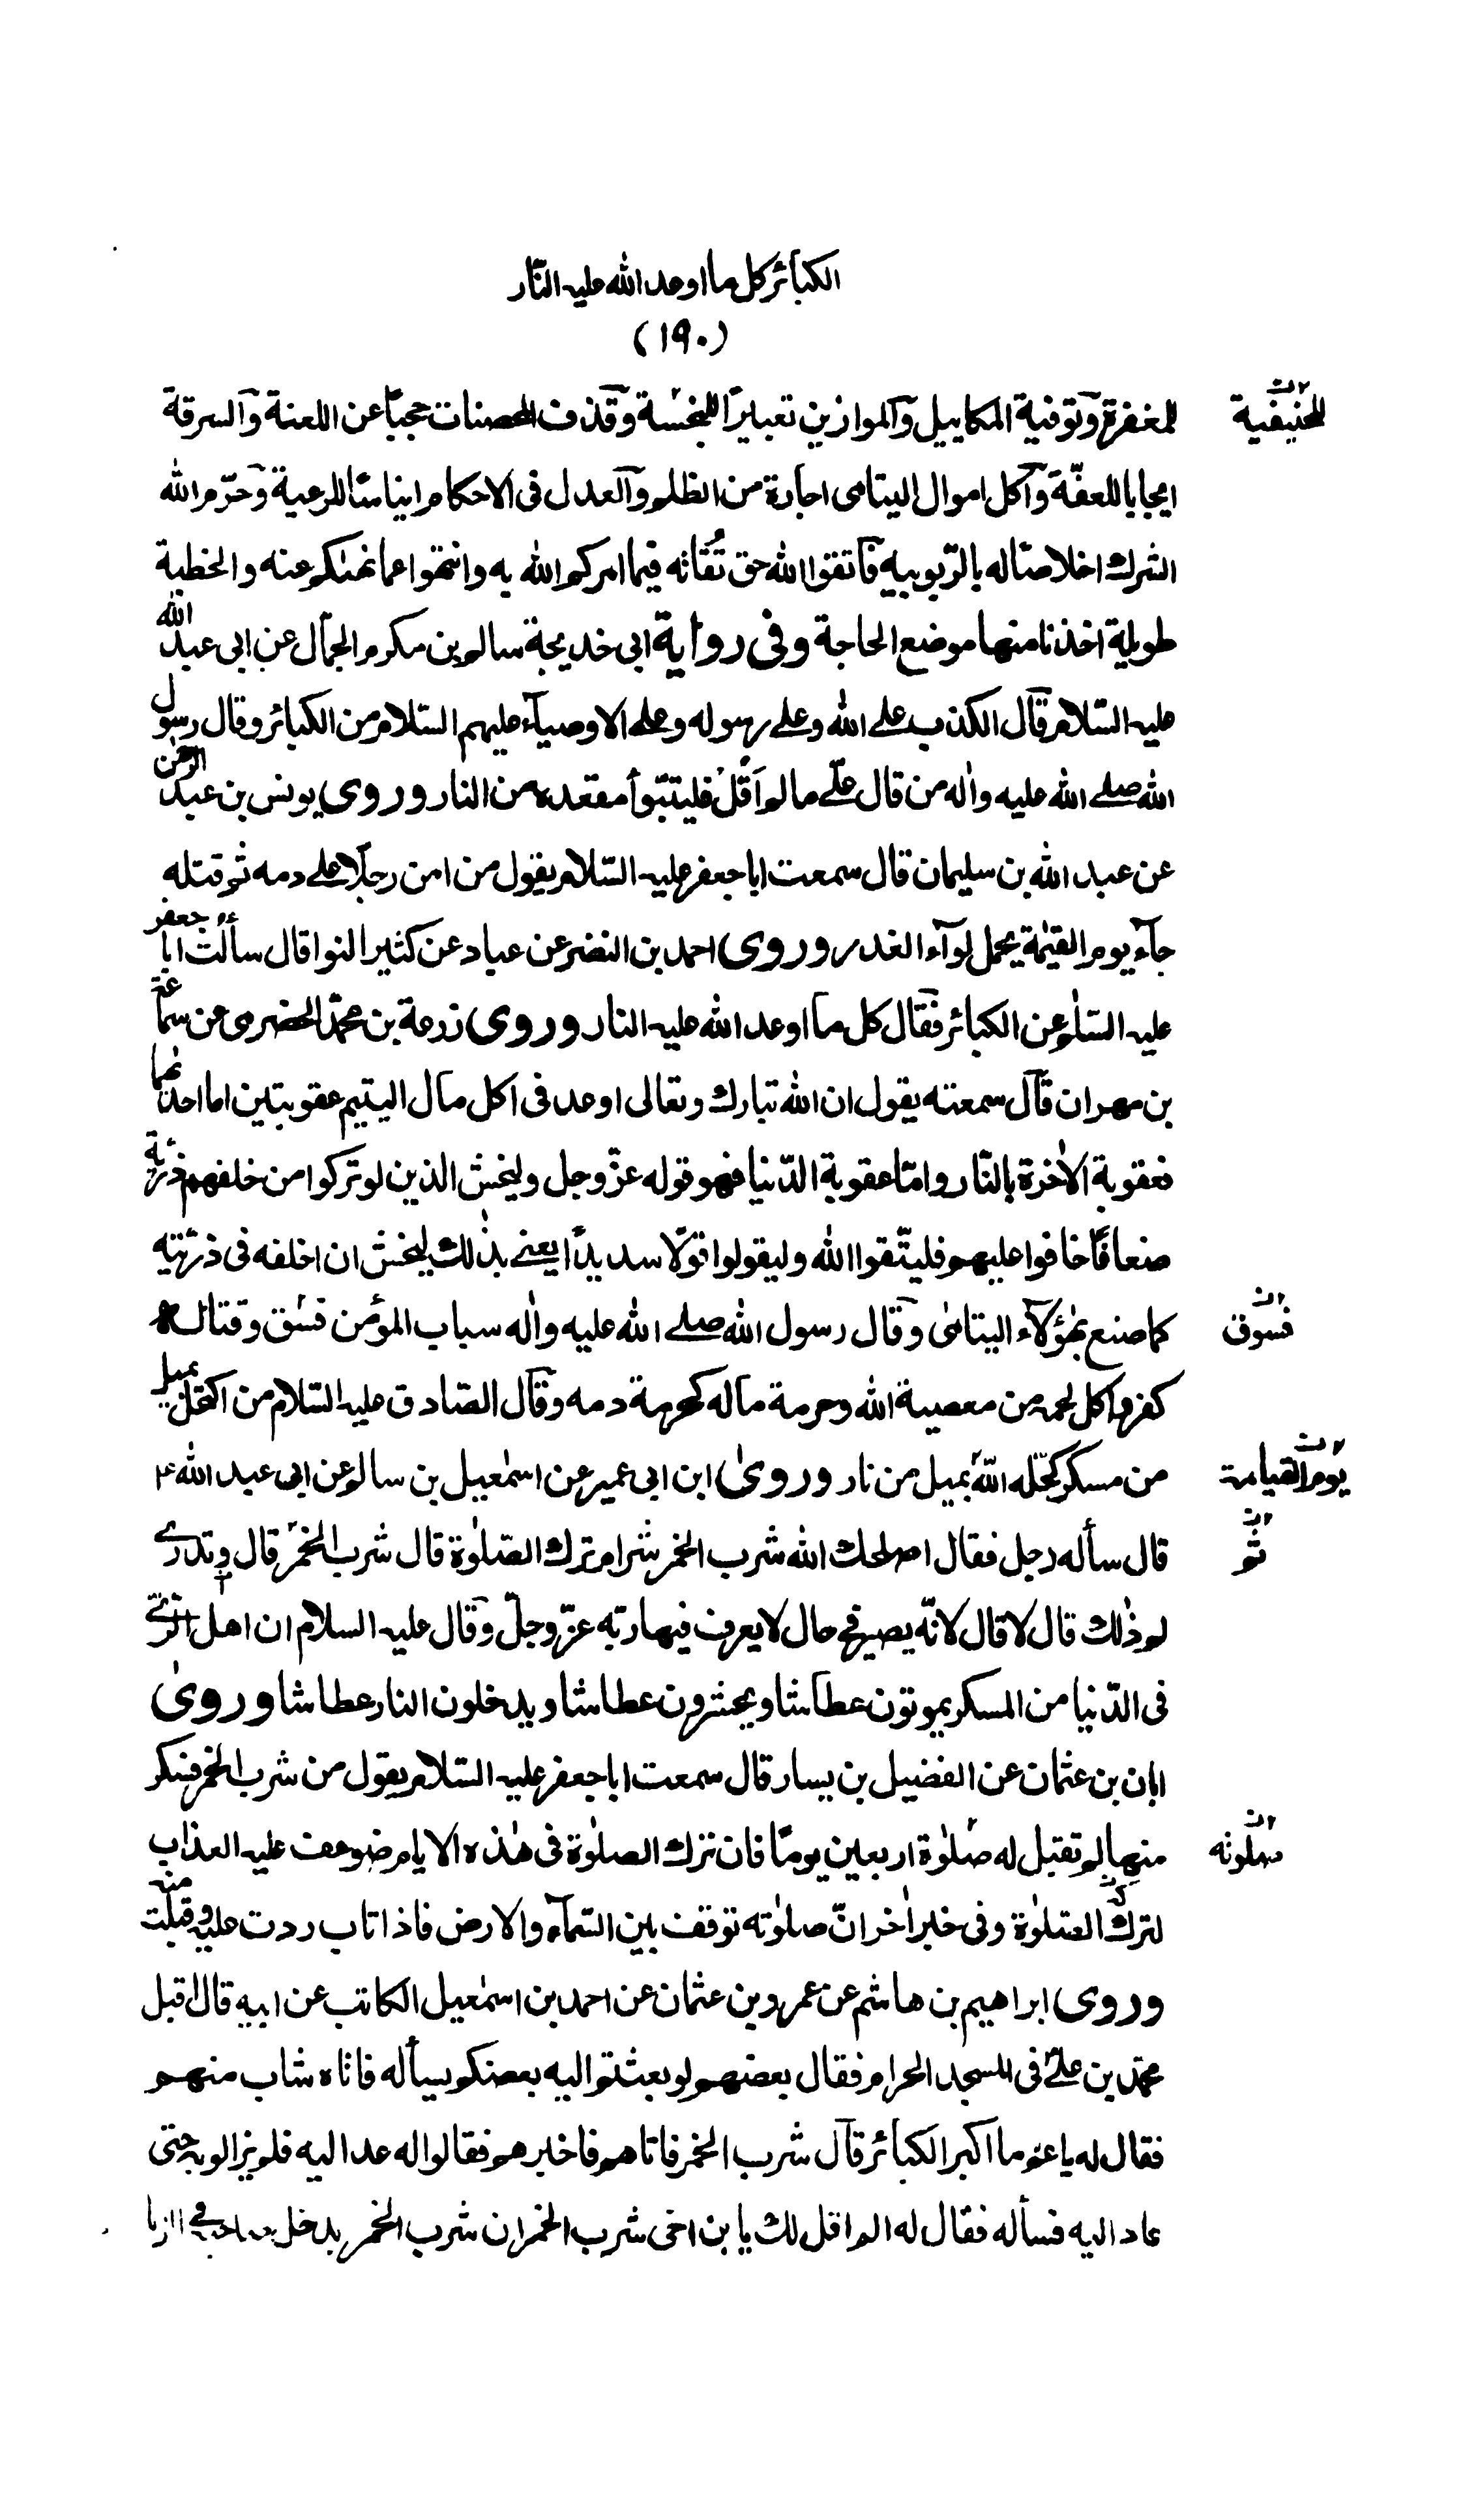 الكبائر كل ما اوعد الله عليه النّار
(۱۹۰)
للمغفرة وتوفية المكاييل والموازين تعييرا للبخسة وقذف المحصنات حجبا عن اللعنة والسرقة
للحنيفية
ايجابا للعفّة واكل اموال اليتامى اجارة من الظلم والعدل فى الاحكام ايناسًا للرعية وحرّم الله
الشرك اخلاصًا له بالرّبوبيه فاتقوا الله حق تُقاته فيما امركم الله به وانتهوا عما نهٰىكم عنه والخطبة
طويلة اخذنا منها موضع الحاجة وفى رواية ابى خديجة سالم بن مكرم الجمّال عن ابى عبد الله
عليه السّلام قال الكذب على الله وعلى رسوله وعلى الاوصياء عليهم السّلام من الكبائر وقال رسول
الله صلى الله عليه واٰله من قال علىّ ما لم اَقُلْ فليتبّوأ مقعده من النار وروى يونس بن عبد الرحمٰن
عن عبد الله بن سليمان قال سمعت ابا جعفر عليه السّلام يقول من امن رجلًا على دمه ثم قتله
جآء يوم القيٰمة يحمل لوآء الغدر وروى احمد بن النضر عن عباد عن كثير النوا قال سألت ابا جعفر ع
عليه السّلٰم عن الكبائر فقال كل ما اوعد الله عليه النار وروى زرعة بن محمّد الحضرمى عن سماعة
بن مهران قال سمعته يقول ان الله تبارك وتعالى اوعد فى اكل مال اليتيم عقوبتين اما احدٰىهما
فعقوبة الاٰخرة بالنّار وامّا عقوبة الدّنيا فهو قوله عزّ وجل وليخش الذين لو تركوا من خلفهم ذريّة
ضعافًا خافوا عليهم فليتّقوا الله وليقولوا قولًا سديدًا يعنى بذٰلك ليخش ان اخلفه فى ذريّته
كما صنع بهٰؤلاء اليتامىٰ وقال رسول الله صلى الله عليه واٰله سباب المؤمن فسق وقتاله
فسوق
كفر واكل لحمه من معصية الله وحرمة ماله كحرمة دمه وقال الصادق عليه السّلام من اكتحل بميل
من مسكر كحّله اللهُ بميل من نار وروىٰ ابن ابى عمير عن اسمٰعيل بن سالم عن ابى عبد الله ع
يوم القيامة
قال سأله رجل فقال اصلحك الله شرب الخمر شر ام ترك الصّلوٰة قال شرب الخمر قال وتدرى
ثم
لم ذٰلك قال لا قال لانّه يصير فى حال لا يعرف فيها ربّه عزّ وجلّ وقال عليه السلام ان اهل الرّى
فى الدّنيا من المسكر يموتون عطاشا ويحشرون عطاشا ويدخلون النار عطاشا وروىٰ
ابان بن عثمان عن الفضيل بن يسار قال سمعت ابا جعفر عليه السّلام يقول من شرب الخمر فسكر
منها لم تقبل له صلٰوة اربعين يومًا فان ترك الصلوٰة فى هٰذه الايام ضوعف عليه العذاب
صلٰوته
لترك الصّلوٰة وفى خبر اٰخر انّ صلوٰته توقف بين السّمآء والارض فاذا تاب ردت عليه وقبلت منه
وروى ابراهيم بن هاشم عن عمرو بن عثمان عن احمد بن اسمٰعيل الكاتب عن ابيه قال اقبل
محمّد بن علىّ ع فى المسجد الحرام فقال بعضهم لو بعثتم اليه بعضكم يسأله فاتاه شاب منهم
فقال له يا عمّ ما اكبر الكبائر قال شرب الخمر فاتاهم فاخبرهم فقالوا له عد اليه فلم يزالوا به حتى
عاد اليه فسأله فقال له الم اقل لك يا بن اخى شرب الخمر ان شرب الخمر يدخل صاحبه فى الزنا